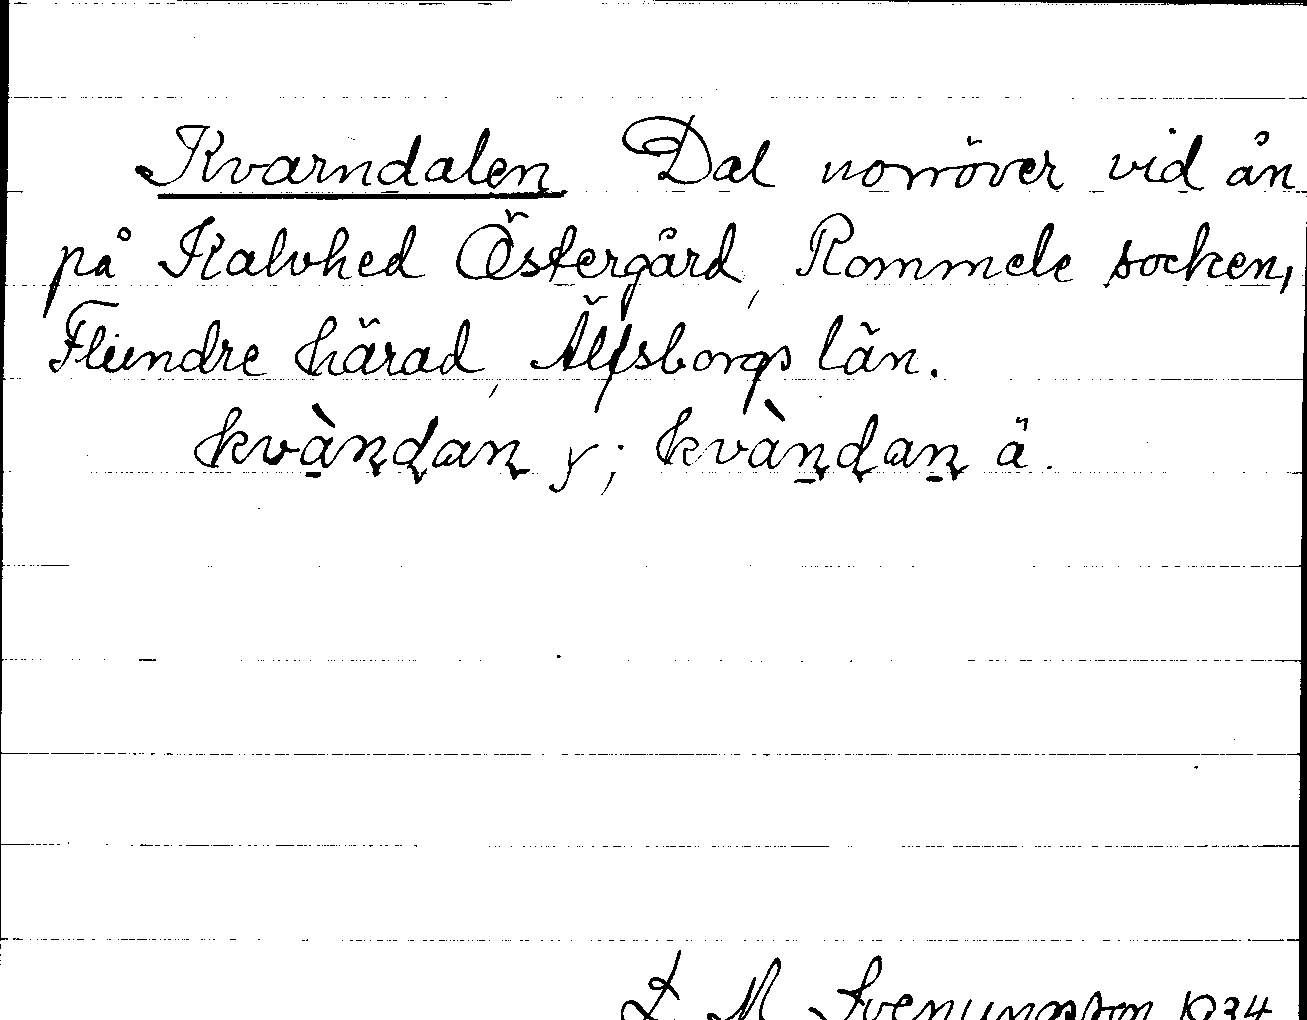 Kvarndalen Dal norröver vid ån
på Kalvhed Östergård, Rommele socken,
Flundre härad, Älfsborgs län.
kvàṇḍaṇ y; kvàṇḍaṇ ä.
M Svenungsson 1934